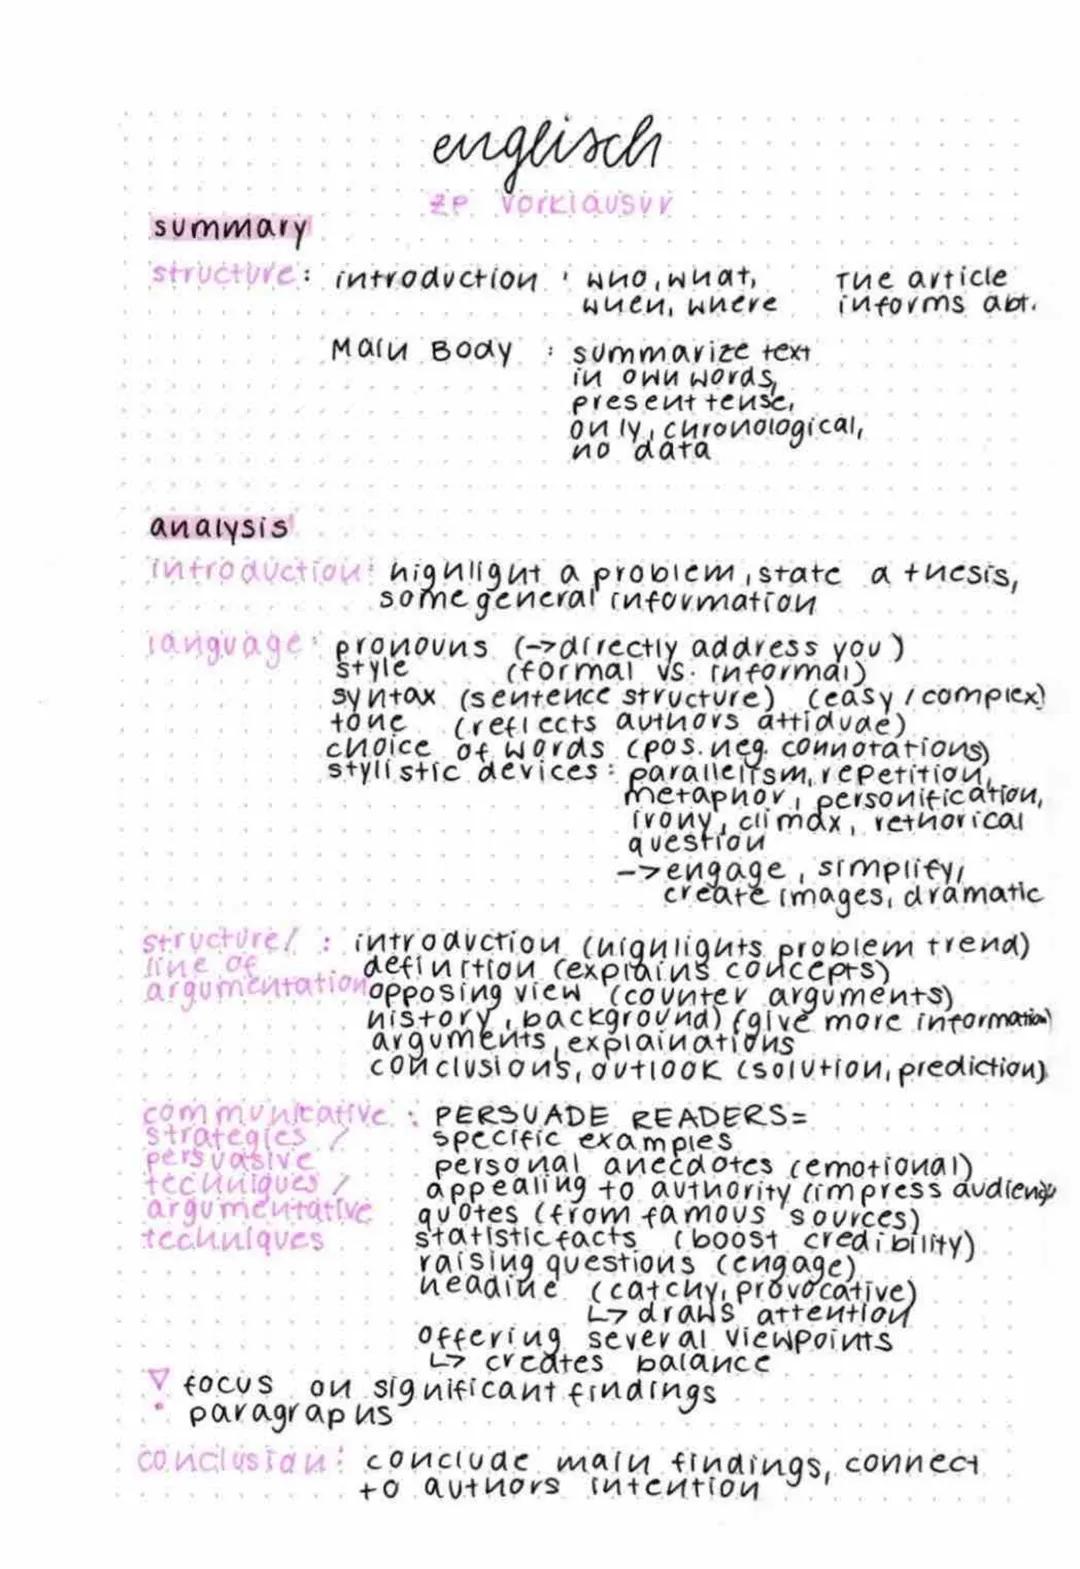 englisch
ZP Vorklausur
summary
structure: introduction : who, what, The article
when, where informs abt.
Main Body : summarize text
in own words,
present tense,
only, chronological,
no data
analysis
introduction: highlight a problem, state a thesis,
some general information
language: pronouns (->directly address you)
style (formal vs. informal)
syntax (sentence structure) (easy / complex)
tone (reflects authors attidude)
choice of words (pos. neg. connotations)
stylistic devices: parallelism, repetition,
metaphor, personification,
irony, climax, rethorical
question
->engage, simplify,
create images, dramatic
structure/ : introduction (highlights problem trend)
line of definition (explains concepts)
argumentation opposing view (counter arguments)
history, background) (give more information)
arguments, explainations
conclusions, outlook (solution, prediction)
communicative : PERSUADE READERS=
strategies / specific examples
persuasive personal anecdotes (emotional)
techniques / appealing to authority (impress audience)
argumentative quotes (from famous sources)
techniques statistic facts (boost credibility)
raising questions (engage)
headine (catchy, provocative)
↳ draws attention
offering several viewpoints
↳ creates balance
focus on significant findings
paragraphs
conclusion: conclude main findings, connect
to authors intention